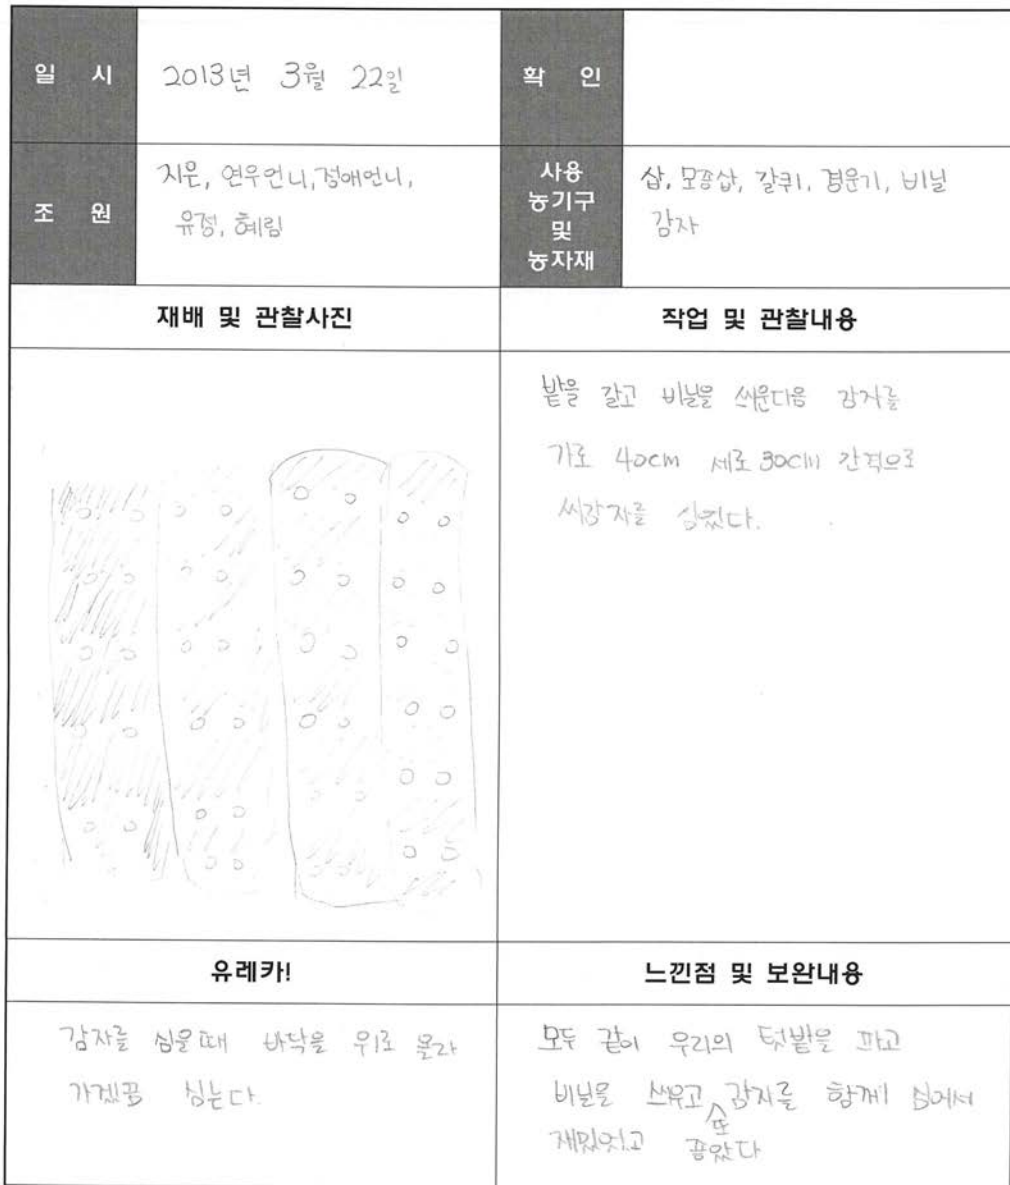 일 시
2013년 3월 22일
확 인
조 원
지은, 연우언니, 정애언니,
유정, 혜림
사용
농기구
및
농자재
삽, 모종삽, 갈퀴, 경운기, 비닐
감자
재배 및 관찰사진
작업 및 관찰내용
밭을 갈고 비닐을 씌운다음 감자를
가로 40cm 세로 30cm 간격으로
씨감자를 심었다.
유레카!
느낀점 및 보완내용
감자를 심을때 바닥을 위로 올라
가게끔 심는다.
모두 같이 우리의 텃밭을 파고
비닐을 씌우고 감자를 함께 심어서
재밌었고 또 좋았다